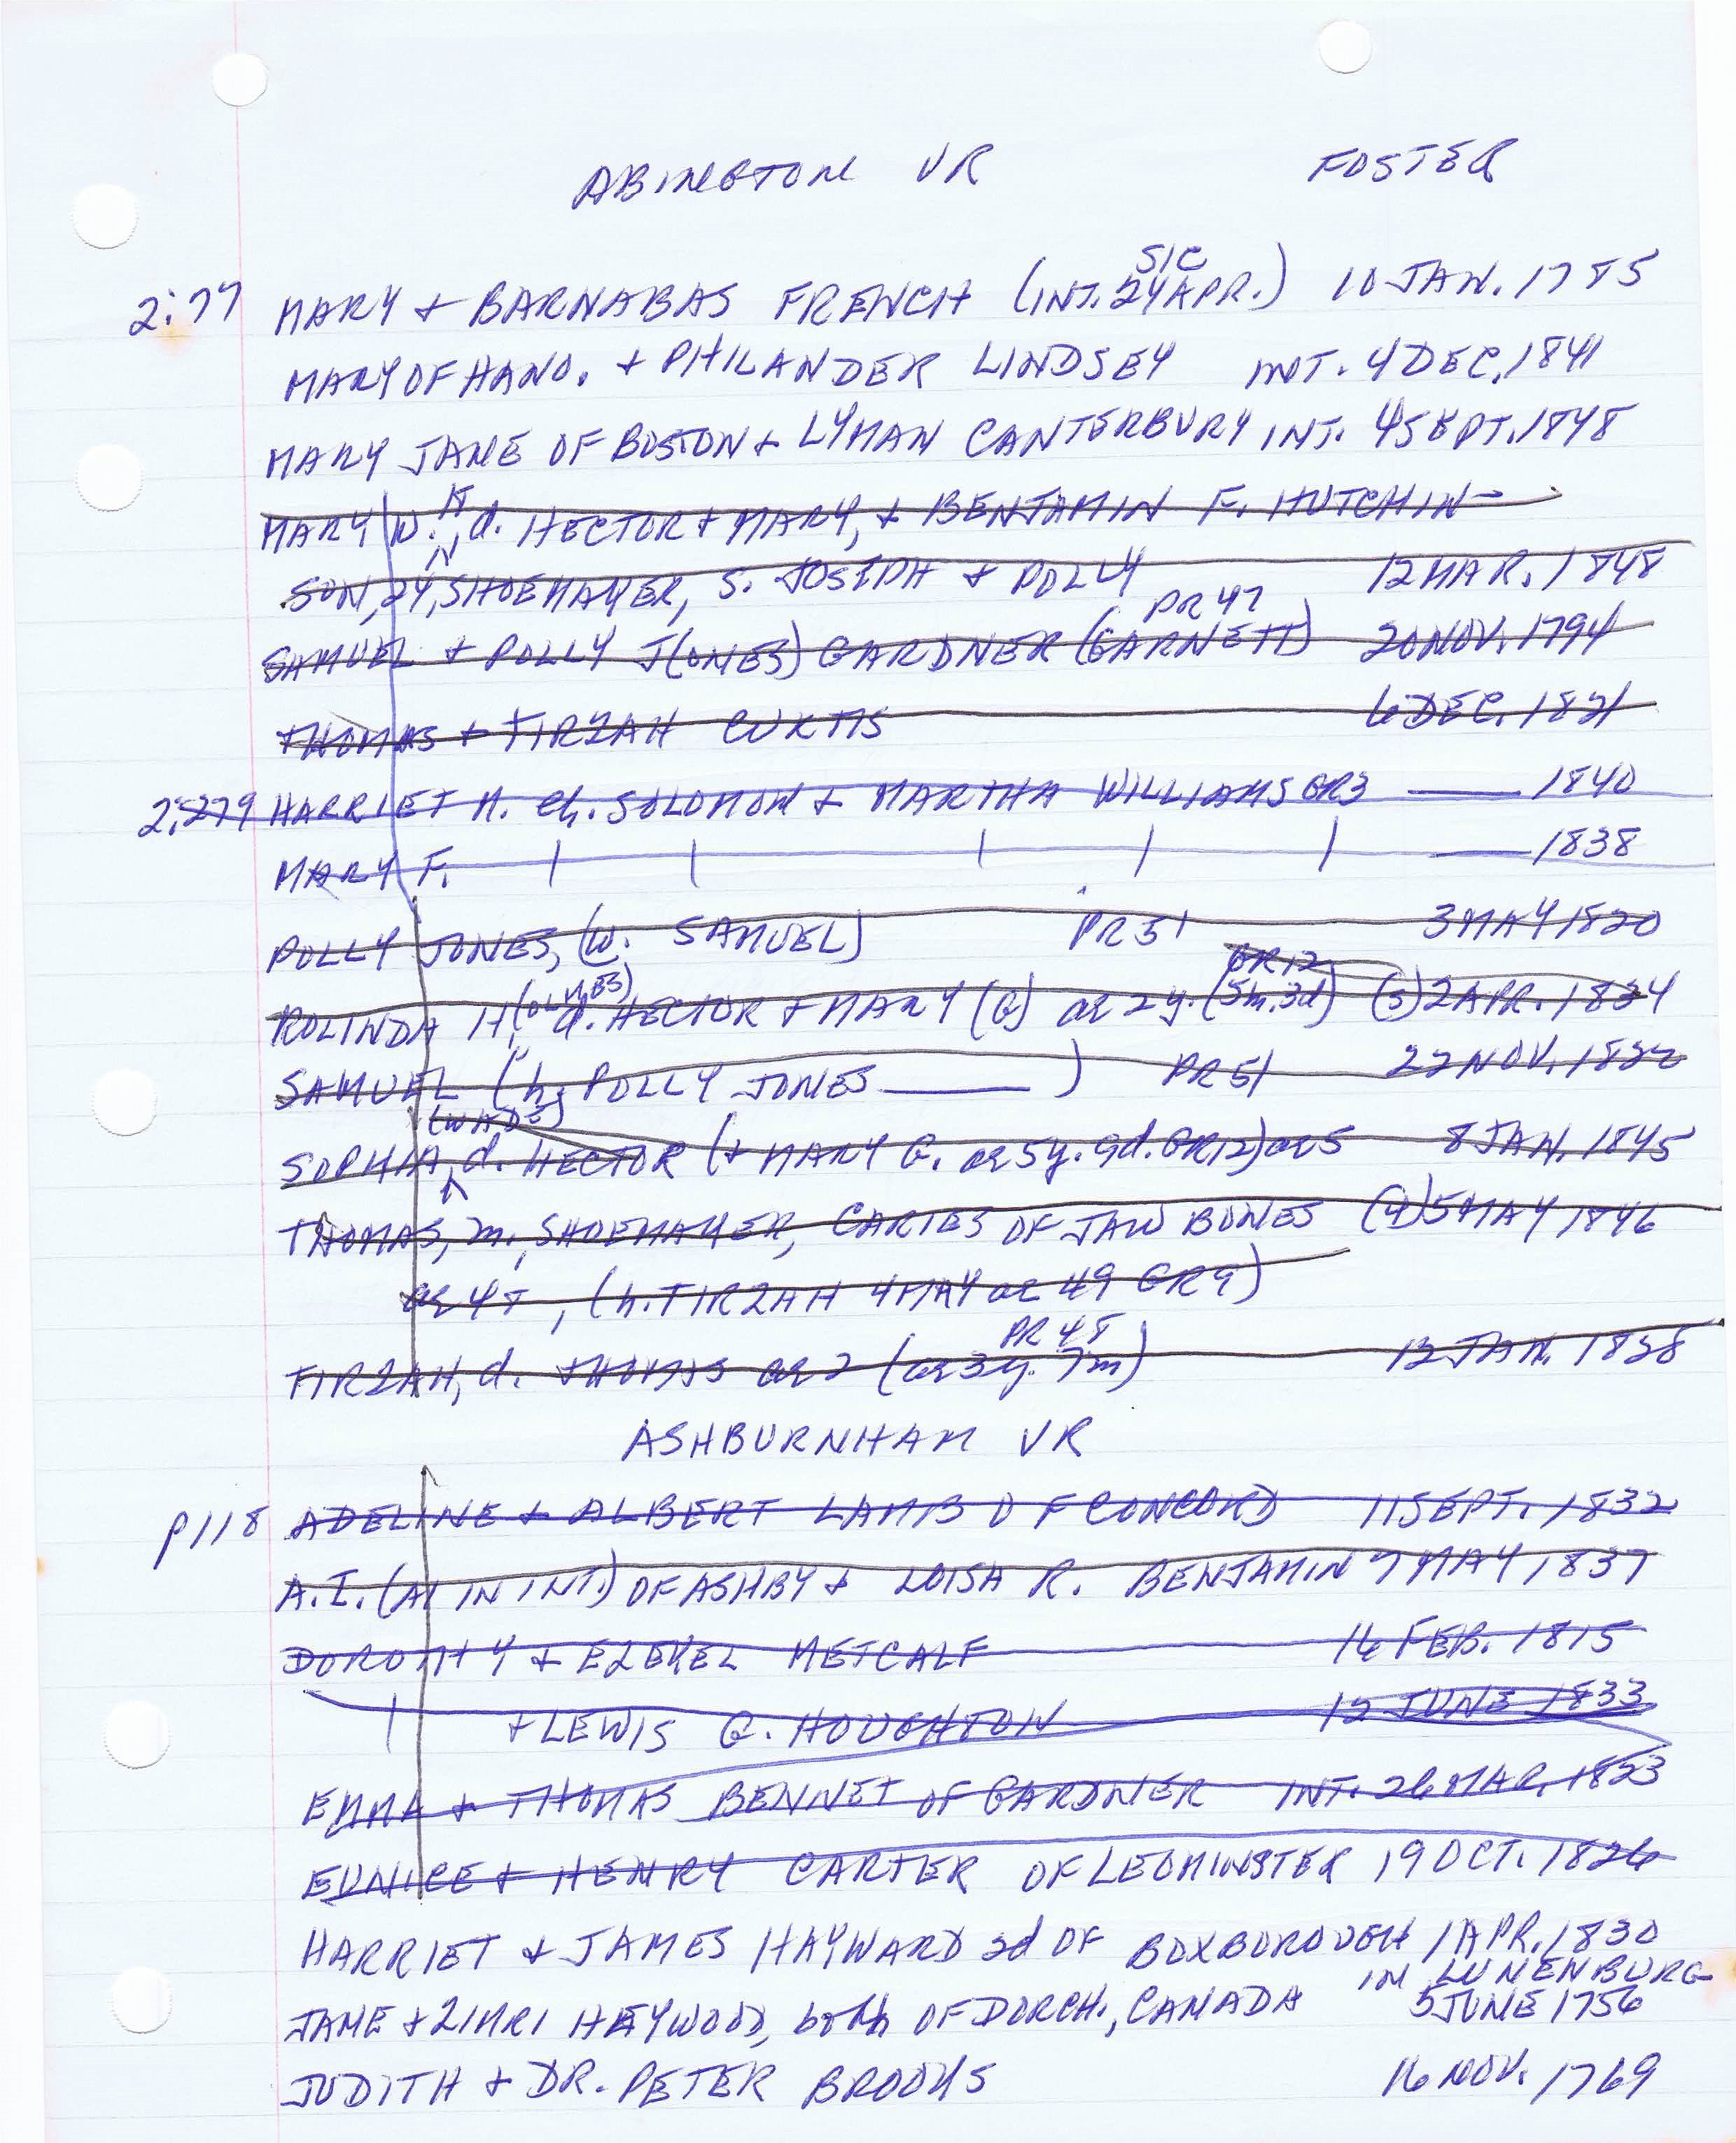 ABINGTON VR FOSTER
SIC
2:77 MARY + BARNABAS FRENCH (INT. 24 APR.) 10 JAN. 1785
MARY OF HANO. + PHILANDER LINDSEY INT. 4 DEC. 1841
MARY JANE OF BOSTON + LYMAN CANTERBURY INT. 4 SEPT. 1848
MARY W. d. HECTOR + MARY, + BENJAMIN F. HUTCHIN-
SON, 24, SHOEMAKER, S. JOSEPH + POLLY 12 MAR. 1848
PR 47
SAMUEL + POLLY J(ONES) GARDNER (GARNETT) 20 NOV. 1794
THOMAS + TIRZAH CURTIS 6 DEC. 1821
2:279 HARRIET N. ch. SOLOMON + MARTHA WILLIAMS GR3 — 1840
MARY F. | | | | | — 1838
POLLY JONES, (w. SAMUEL) PR 51 3 MAY 1820
GR12
ROLINDA H. d. HECTOR + MARY (G) ae 2 y. (5m. 3d) (s) 2 APR. 1834
SAMUEL (h. POLLY JONES —) PR 51 22 NOV. 1822
(WADE)
SOPHIA, d. HECTOR (+ MARY G. ae 5y. 9d. GR12) ae 5 8 JAN. 1845
THOMAS, m., SHOEMAKER, CARIES OF JAW BONES (4) 5 MAY 1846
ae 48, (h. TIRZAH 4 MAY ae 49 GR9)
PR 48
TIRZAH, d. THOMAS ae 2 (ae 3y. 7m) 12 JAN. 1828
ASHBURNHAM VR
p118 ADELINE + ALBERT LAMB OF CONCORD 11 SEPT. 1832
A.I. (AI IN INT.) OF ASHBY + LOISA R. BENJAMIN 7 MAY 1837
DOROTHY + EZEKEL METCALF 16 FEB. 1815
| + LEWIS G. HOUGHTON 12 JUNE 1833
EMMA + THOMAS BENNET OF GARDNER INT. 26 MAR. 1823
EUNICE + HENRY CARTER OF LEOMINSTER 19 OCT. 1826
HARRIET + JAMES HAYWARD 2d OF BOXBOROUGH 1 APR. 1830
IN LUNENBURG
JANE + ZIMRI HEYWOOD, both OF DORCH., CANADA 5 JUNE 1756
JUDITH + DR. PETER BROOKS 16 NOV. 1769